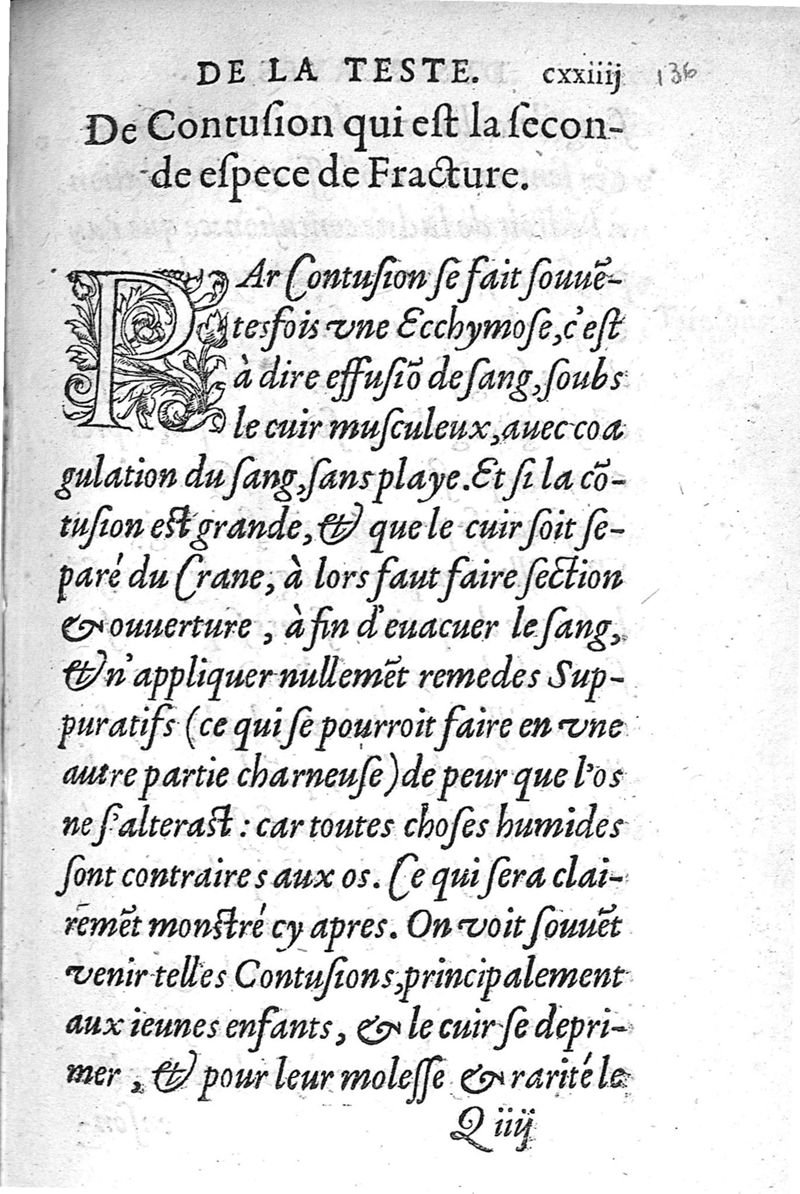 DE LA TESTE. cxxiiij 136
De Contuſion qui eſt la ſecon-
de eſpece de Fracture.
PAr Contuſion ſe fait ſouuē-
tesfois vne Ecchymoſe, c'eſt
à dire effuſiō de ſang, ſoubs
le cuir muſculeux, auec coa
gulation du ſang, ſans playe. Et ſi la cō-
tuſion eſt grande, & que le cuir ſoit ſe-
paré du Crane, à lors faut faire ſection
& ouuerture, à fin d'euacuer le ſang,
& n'appliquer nullemēt remedes Sup-
puratifs (ce qui ſe pourroit faire en vne
autre partie charneuſe) de peur que l'os
ne ſ'alteraſt : car toutes choſes humides
ſont contraires aux os. Ce qui ſera clai-
remēt monſtré cy apres. On voit ſouuēt
venir telles Contuſions, principalement
aux ieunes enfants, & le cuir ſe depri-
mer, & pour leur moleſſe & rarité le
Q iiij